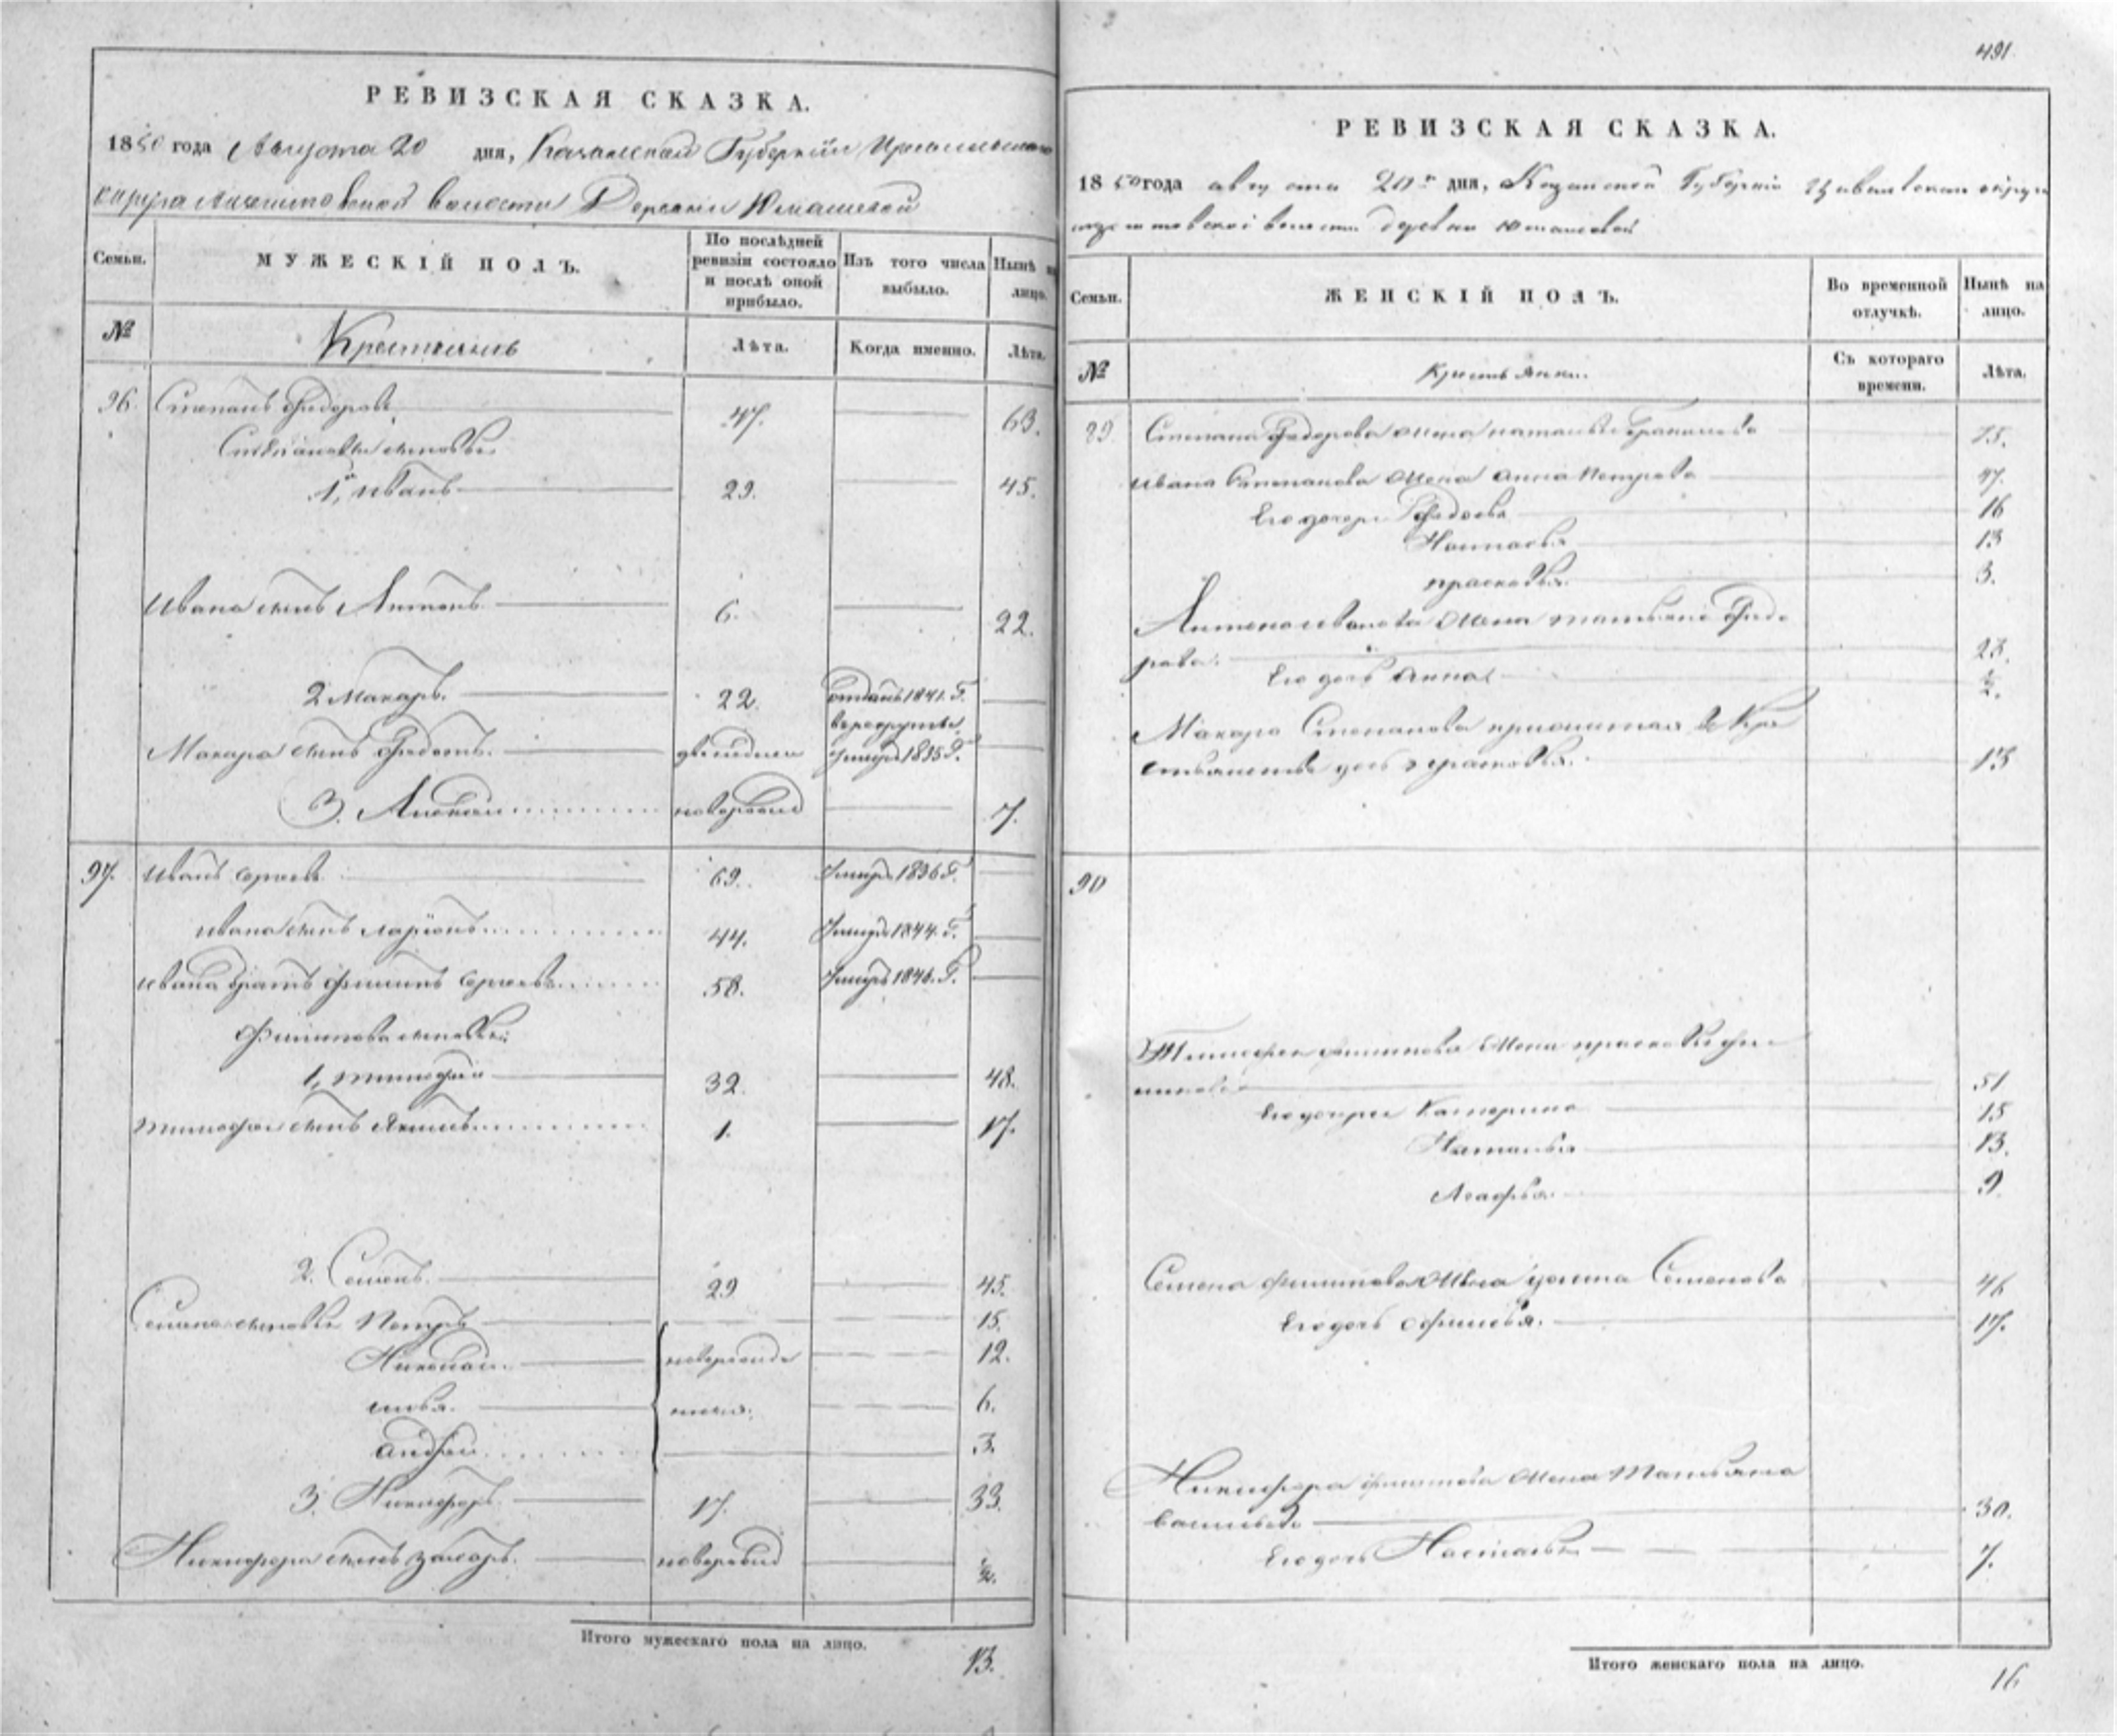 РЕВИЗСКАЯ СКАЗКА.
1850 года Августа 20 дня, Казанской Губернии Цивильскаго
округа волости Деревни Юмашевой
Семьи. МУЖЕСКІЙ ПОЛЪ. По послѣдней ревизіи состояло и послѣ оной прибыло. Изъ того числа выбыло. Нынѣ на лицо.
№ Крестьянъ Лѣта. Когда именно. Лѣта.
96. Степанъ Федоровъ 47. 63.
Степановы сыновья
1й, Иванъ 29. 45.
Ивана сынъ Антонъ 6. 22.
2 Макаръ. 22. отданъ 1841. Г.
в рекруты
Макара сынъ Федотъ. умеръ 1835 Г.
3. Алексей новорожд 7.
97. Иванъ Сергеевъ 69. Умеръ 1836 Г.
Ивана сынъ Ларіонъ 44. Умеръ 1844. Г.
Ивана братъ Филипъ Сергеевъ 58. Умеръ 1846. Г.
Филипова сыновья
1, Тимофей 32. 48.
Тимофея сынъ Якимъ 1. 17.
2. Семенъ. 29 45.
Семена сыновья Петръ 15.
Николай новорожде 12.
Илья. нныя. 6.
Андрей 3.
3. Никифоръ 17. 33.
Никифора сынъ Захаръ. новорожд ½.
Итого мужескаго пола на лицо. 13.
491.
РЕВИЗСКАЯ СКАЗКА.
1850 года августа 20го дня, Казанской Губерніи Цивильскаго округа
волости деревни Юмашевой
Семьи. ЖЕНСКІЙ ПОЛЪ. Во временной отлучкѣ. Нынѣ на лицо.
№ Крестьянки. Съ котораго времени. Лѣта.
89. Степана Федорова жена Наталья 75.
Ивана Степанова жена Анна Петрова 47.
Его дочери Федосья 16
Настасья 13
Прасковья 3.
Антона Иванова жена Татьяна Федо
рова. 23.
Его дочь Анна ½.
Макара Степанова прижитая в Кре
стьянстве дочь Прасковья. 13
90
Тимофея Филипова жена Прасковья Фи
липова 51
Его дочери Катерина 15
Наталья 13.
Агафья. 9.
Семена Филипова жена Улита Семенова 46
Его дочь Афимья. 17.
Никифора Филипова жена Татьяна
Васильева 30.
Его дочь Настасья 7.
Итого женскаго пола на лицо. 16